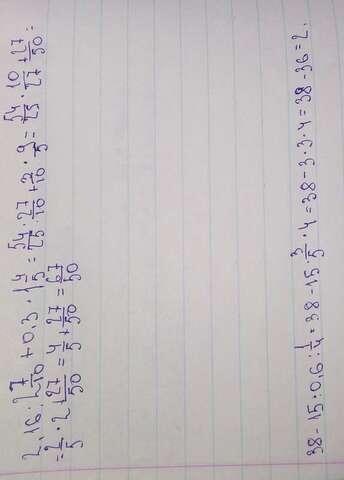 2,16 : 2 7/10 + 0,3 · 1 4/5 = 54/25 · 27/10 + 2/10 · 9/5 = 54/25 · 10/27 + 27/50 =
= 2/5 · 2 + 27/50 = 4/5 + 27/50 = 67/50
38 - 15 · 0,6 : 1/4 = 38 - 15 3/5 · 4 = 38 - 3 · 3 · 4 = 38 - 36 = 2.